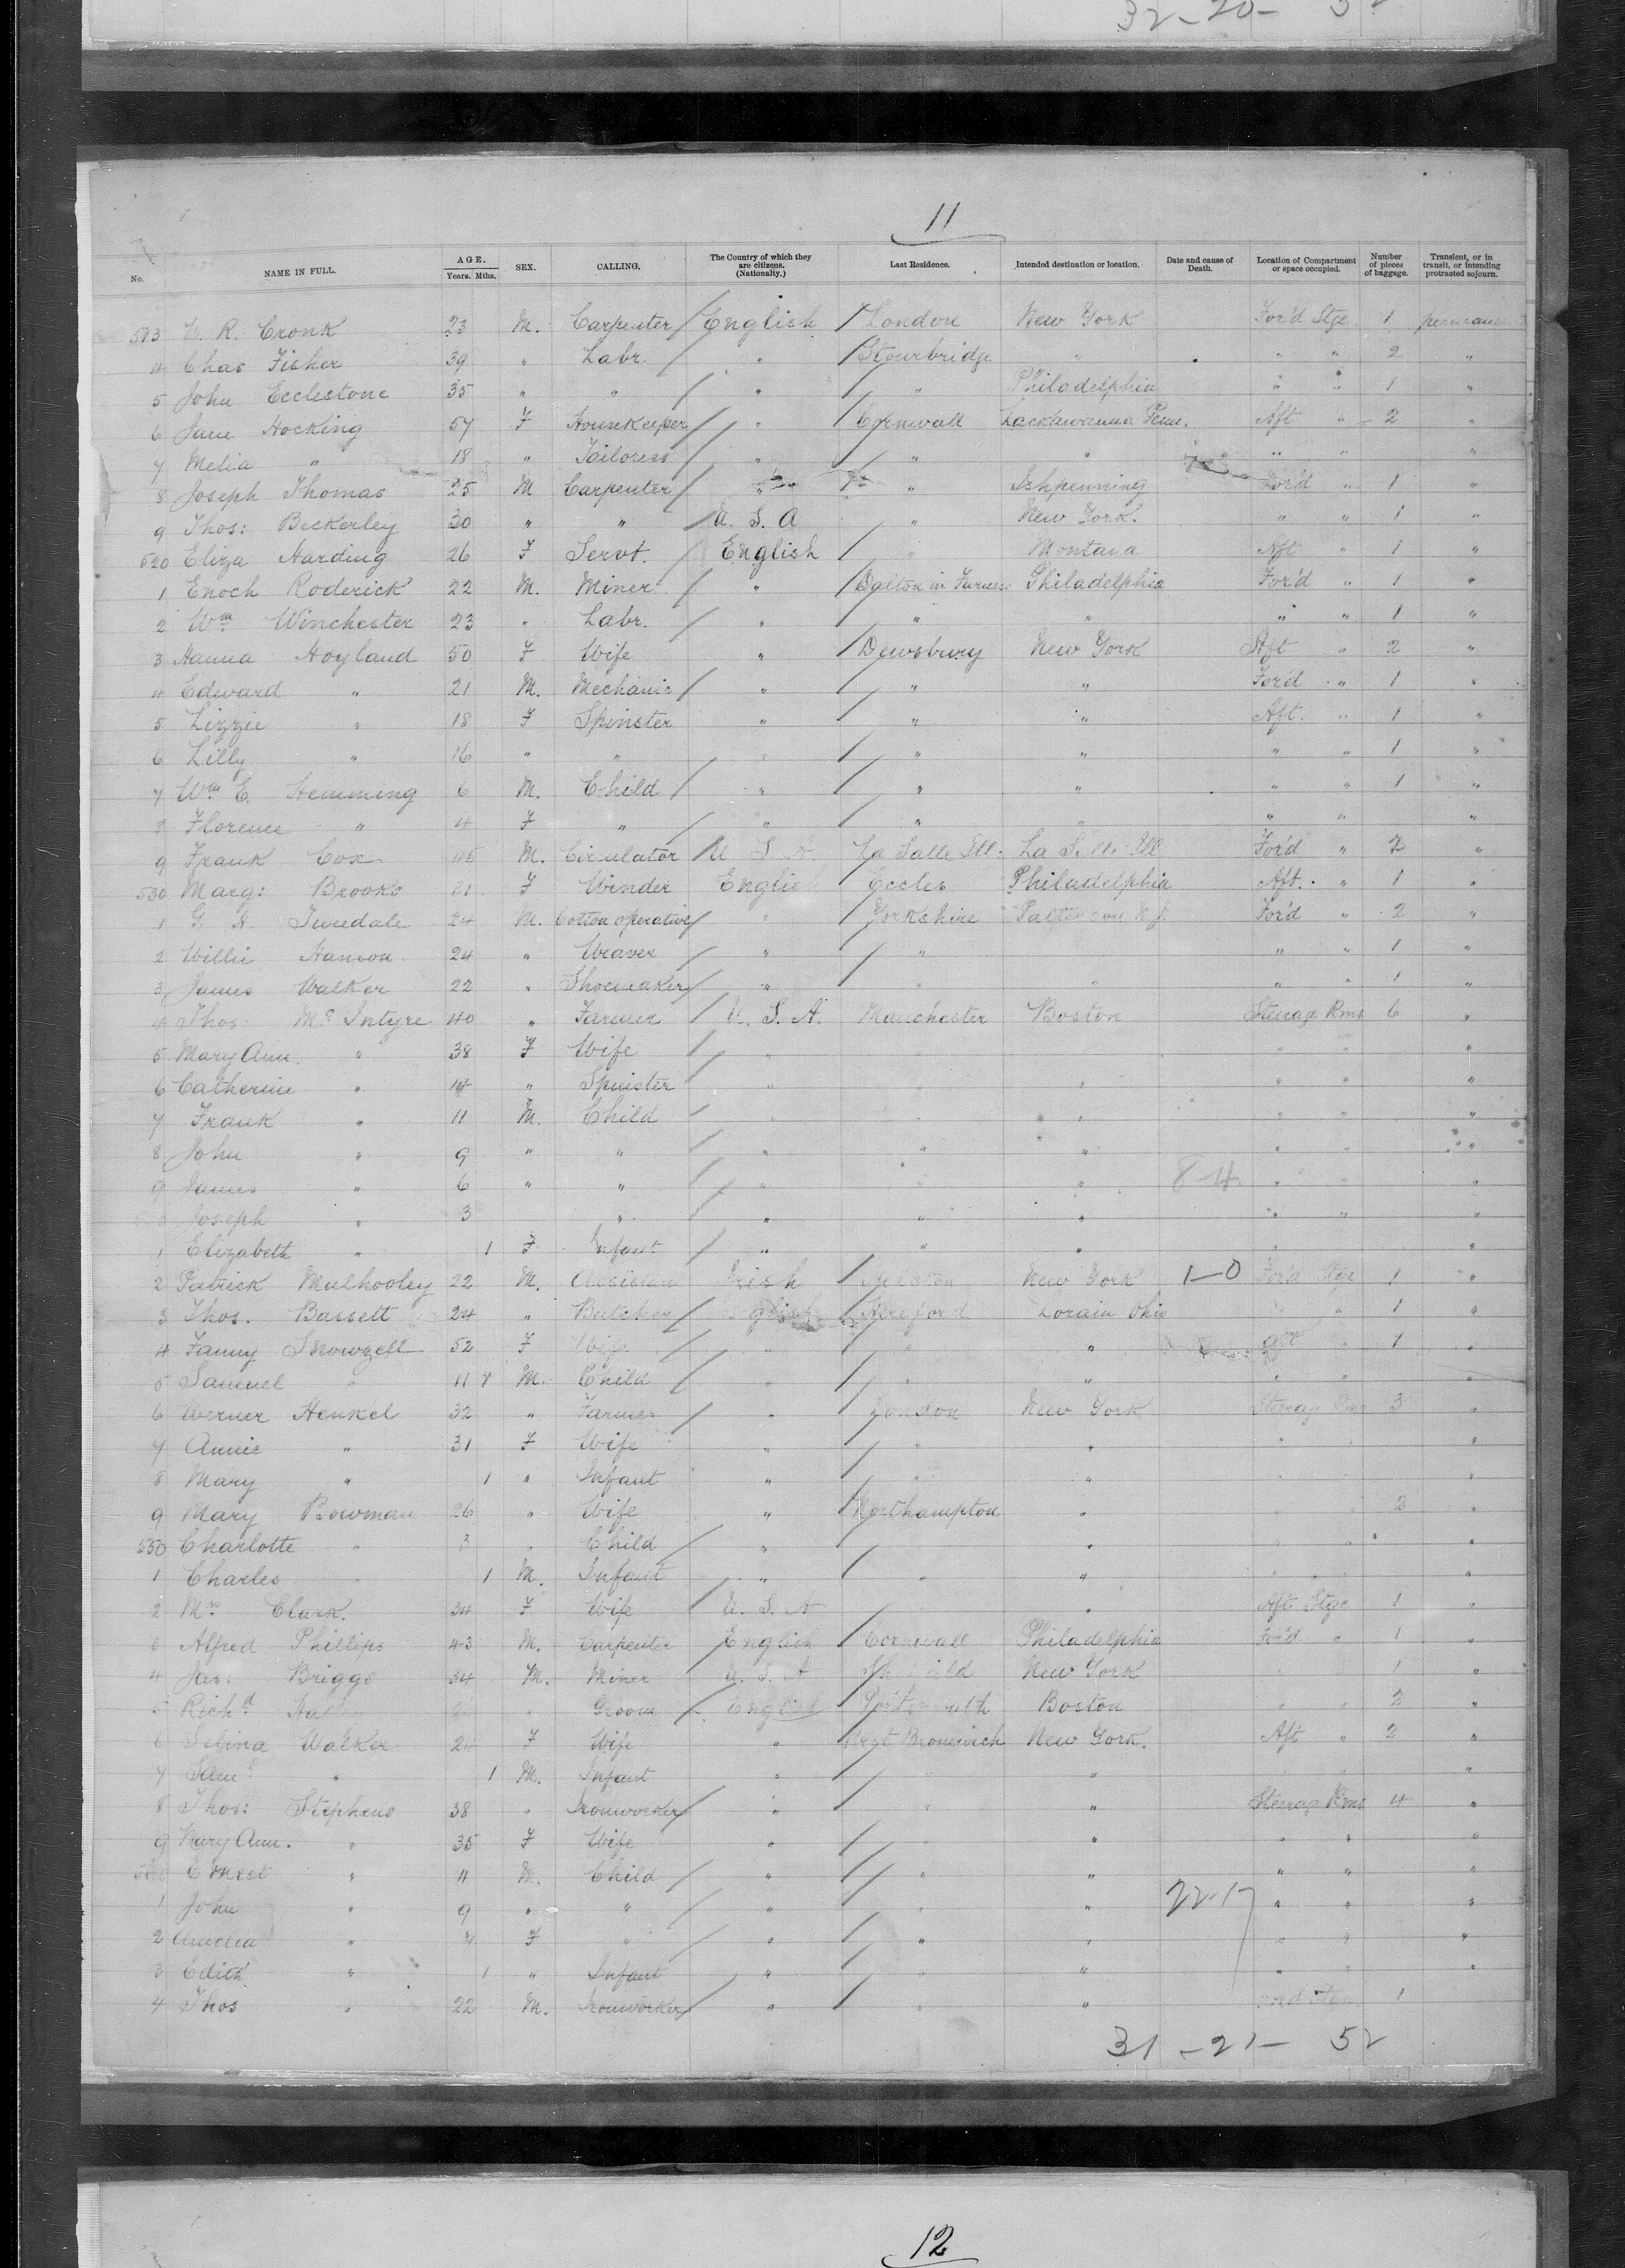 32-20-
11
No. NAME IN FULL. AGE. Years. Mths. SEX. CALLING. The Country of which they are citizens. (Nationality.) Last Residence. Intended destination or location. Date and cause of Death. Location of Compartment or space occupied. Number of pieces of baggage. Transient, or in transit, or intending protracted sojourn.
513 R. Cronk 23 M. Carpenter English London New York For'd Stge 1
4 Chas Fisher 39 " Labr. " Stourbridge " " " 2 "
5 John Ecclestone 35 " " " " Philadelphia " " 1 "
6 Jane Hocking 57 F Housekeeper " Cornwall Lackawanna Penn. Aft " 2 "
7 Melia " 18 " Tailoress " " " " " "
8 Joseph Thomas 25 M Carpenter " " Ishpenning For'd " 1 "
9 Thos: Beckerley 30 " " U. S. A " New York. " " 1 "
520 Eliza Harding 26 F Servt. English " Montana Aft " 1 "
1 Enoch Roderick 22 M. Miner " Dalton in Furness Philadelphia For'd " 1 "
2 Wm Winchester 23 " Labr. " " " " " 1 "
3 Hanna Hoyland 50 F Wife " Dewsbury New York Aft " 2 "
4 Edward " 21 M. Mechanic " " " For'd " 1 "
5 Lizzie " 18 F Spinster " " " Aft. " 1 "
6 Lilly " 16 " " " " " " " 1 "
7 Wm E. Hemming 6 M. Child " " " " " 1 "
8 Florence " 4 F " " " " " " "
9 Frank Cox M. Circulator U S A La Salle Ill. La Salle Ill For'd " 2 "
530 Marg: Brooks F Winder English Eccles Philadelphia Aft. " 1 "
1 G. Twedale 24 M. Cotton operative " Yorkshire N.J. For'd " 2 "
2 Willie Hanson 24 " Weaver " " " " 1 "
3 James Walker 22 " Shoemaker " " " " " 1 "
4 Thos Mc Intyre 40 " Farmer U. S. A. Manchester Boston Steerage Rms 6 "
5 Mary Ann " 38 F Wife " " " "
6 Catherine " 14 " Spinster " " " " "
7 Frank " 11 M. Child " " " " "
8 John " 9 " " " " " " " "
9 James " 6 " " " " " 8-4 " " "
Joseph " 3 " " " " " " "
1 Elizabeth " 1 F Infant " " " " "
2 Patrick Mulhooley 22 M. Irish New York 1-0 For'd Stge 1 "
3 Thos. Bassett 24 " Butcher English Hereford Lorain Ohio " 1 "
4 Fanny Snowzell 52 F Wife " " " Aft " 1 "
5 Samuel " 11 M. Child " " " " " "
6 Werner Henkel 32 " Farmer " London New York Steerage Rms 3 "
7 Annie " 31 F Wife " " " " "
8 Mary " 1 " Infant " " " "
9 Mary Bowman 26 " Wife " Northampton " 2 "
550 Charlotte " 3 " Child " " "
1 Charles " 1 M. Infant " " " "
2 Mrs Clark. 34 F Wife U. S. A " Aft Stge 1 "
3 Alfred Phillips 43 M. Carpenter English Cornwall Philadelphia For'd " 1 "
4 Jas: Briggs 34 M. Miner U. S. A Sheffield New York 1 "
5 Richd " Groom English Portsmouth Boston " " 2 "
6 Selina Walker 24 F Wife " West Bromwich New York. Aft " 2 "
7 Saml " 1 M. Infant " " " "
8 Thos: Stephens 38 " Ironworker " " " Steerage Rms 4 "
9 Mary Ann. " 35 F Wife " " " " " "
560 Ernest " 11 M. Child " " " " " "
1 John " 9 " " " " " 22-17 " " "
2 Amelia " F " " " " " " "
3 Edith " 1 " Infant " " " " " "
4 Thos " 22 M. Ironworker " " " For'd Stge 1
31-21- 52
12